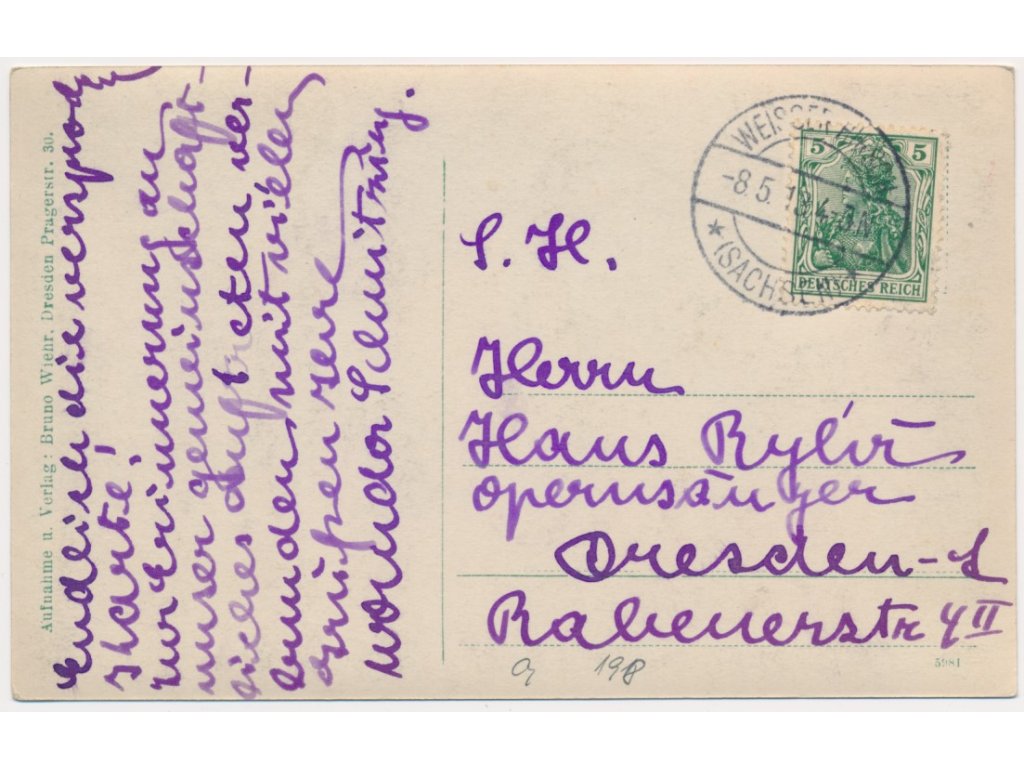 Aufnahme u. Verlag: Bruno Wiehr, Dresden Pragerstr. 30.
Endlich die versprod
Kharte,
zur Erinnerung an
unser gemeinschaft-
liches Auftreten ver-
bunden mit vielen
Grüßen Ihre
Schnitzing.
WEISSER
-8.5.1
*(SACHSEN)
5 5
DEUTSCHES REICH
S. H.
Herrn
Hans
Opernsänger
Dresden-
Rabenerstr 4 II
198
5981